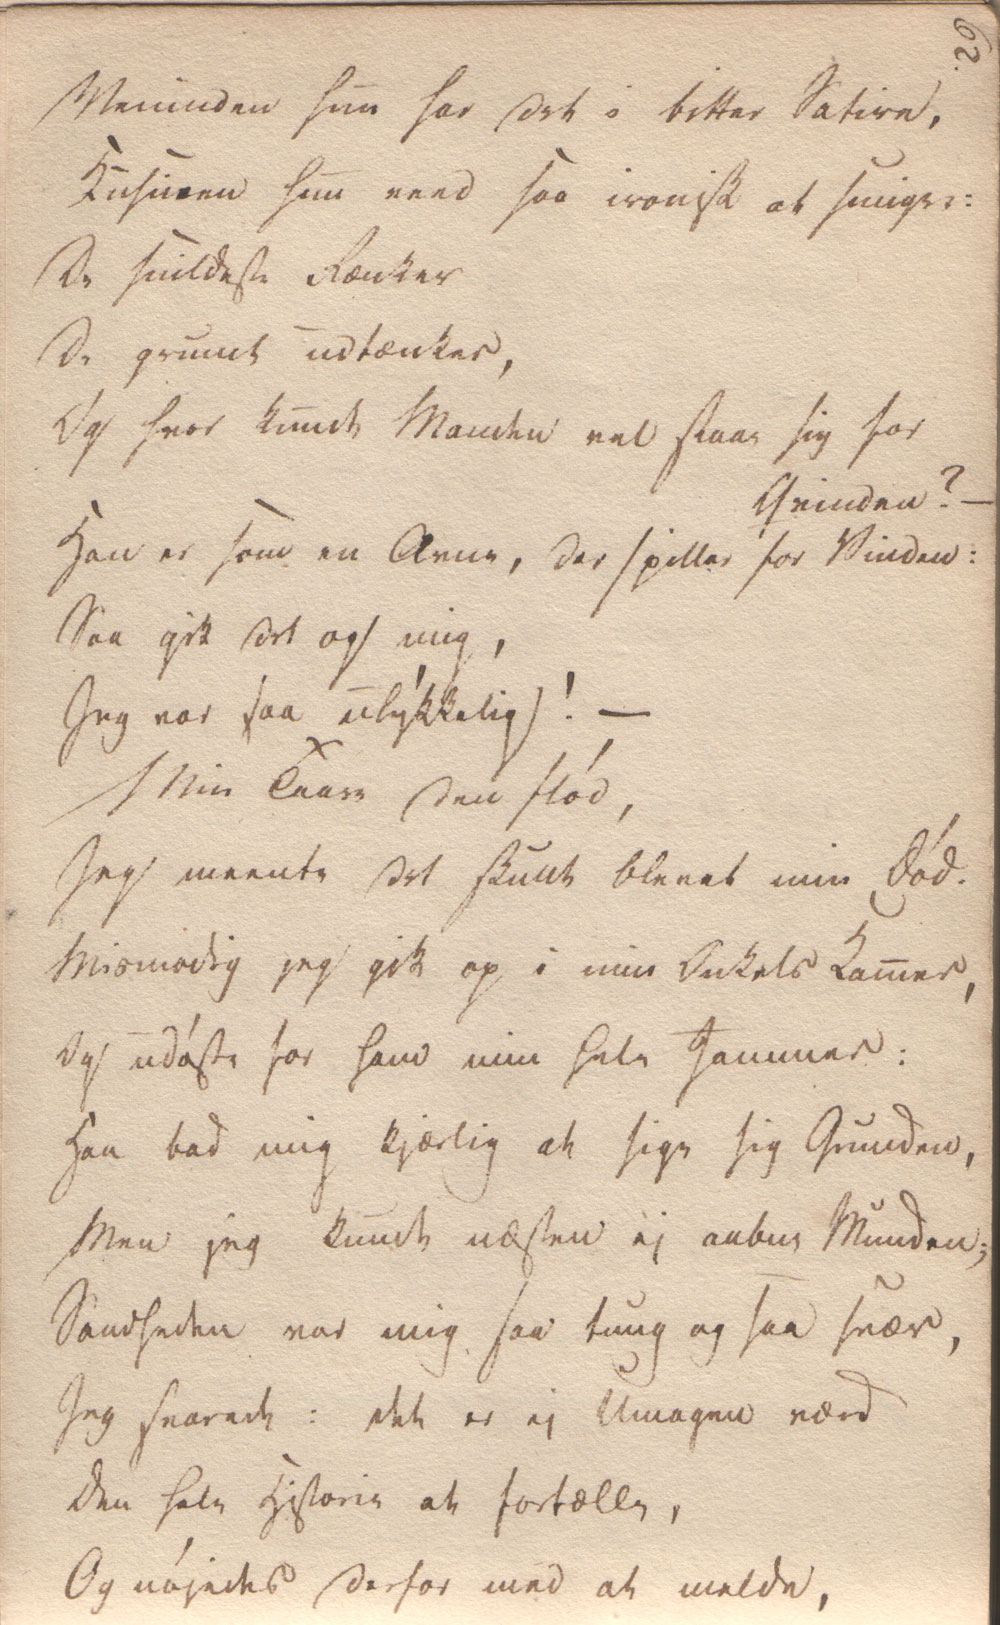 29.
Veninden hun har det i bitter Satire,
Kusinen hun veed saa ironisk at smigre:
De snildeste Rænker
De grumt udtænker,
Og hvor kunde Manden vel staae sig for
Qvinden? —
Han er som en Avne, der spiller for Vinden:
Saa gik det og mig,
Jeg var saa ulykkelig! —
Min Taare den flød,
Jeg meente det skulde blevet min Død.
Mismodig jeg gik op i min Onkels Kammer,
Og udøste for ham min hele Jammer:
Han bad mig kjærlig at sige sig Grunden,
Men jeg kunde næsten ej aabne Munden;
Sandheden var mig saa tung og saa svær,
Jeg svarede: det er ej Umagen værd
Den hele Historie at fortælle,
Og nøjedes derfor med at melde,